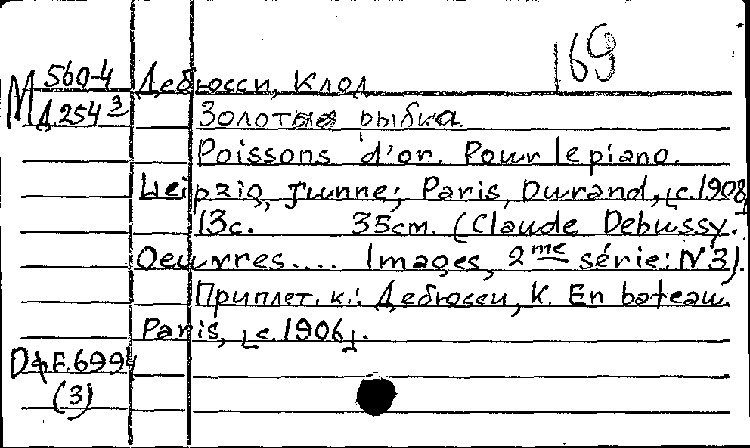 169
М 560-4 Дебюсси, Клод
Д.254 3 Золотая рыбка
Poissons d'or. Pour le piano.
Leipzig, Junne; Paris, Durand, [c.1908]
13с. 35см. (Claude Debussy.
Oeuvres.... Images, 2me série: N3).
Приплет. к.: Дебюсси, К. En bateau.
Paris, [c.1906].
DφF.6994
(3)